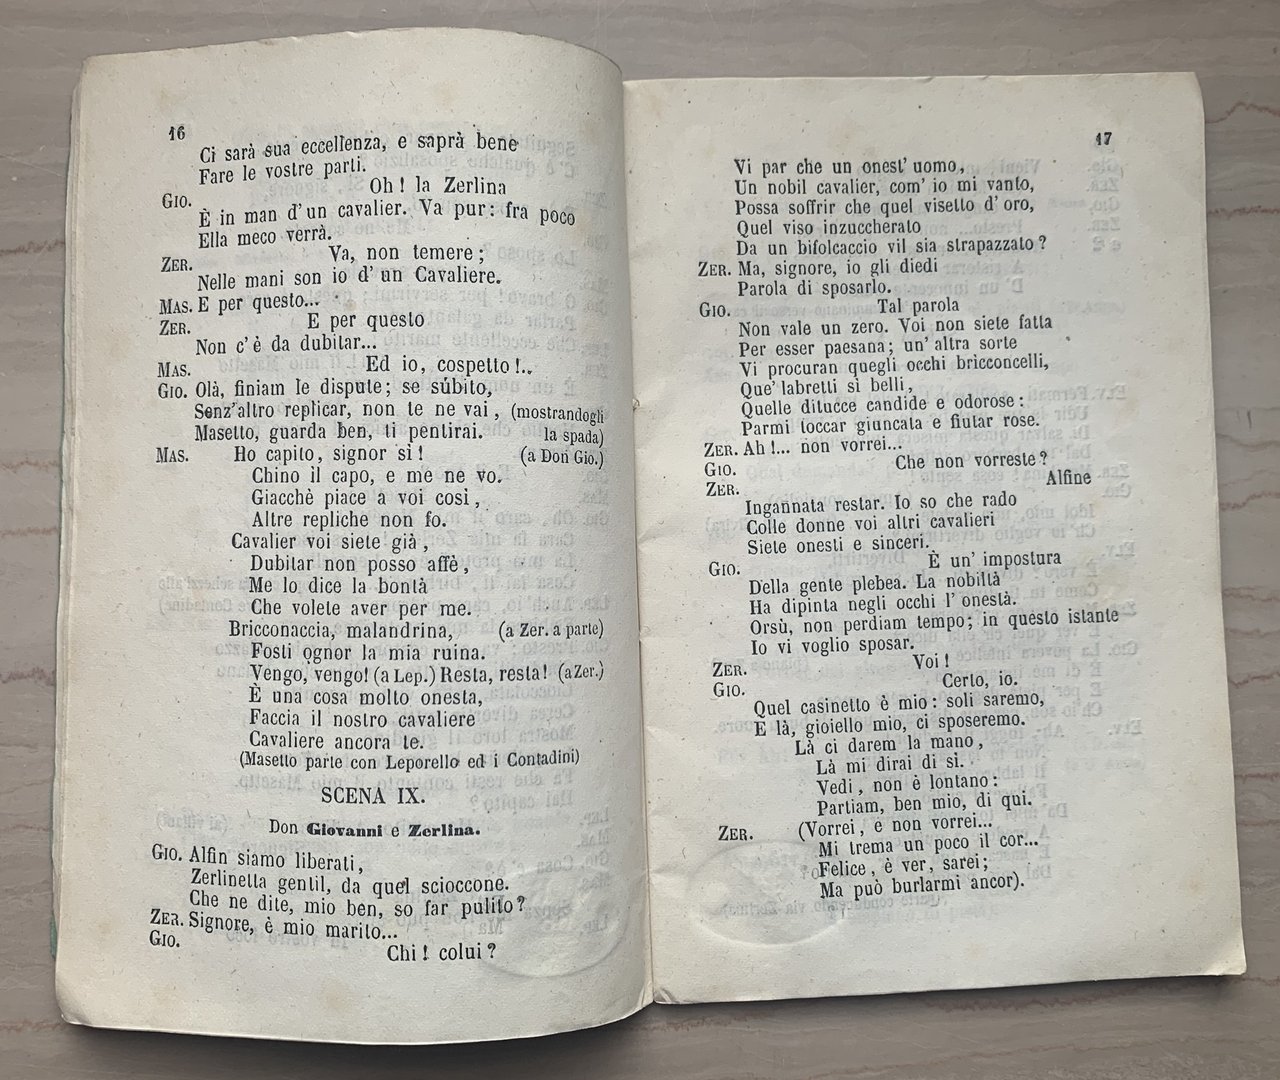 16
Ci sarà sua eccellenza, e saprà bene
Fare le vostre parti.
GIO. Oh! la Zerlina
È in man d'un cavalier. Va pur: fra poco
Ella meco verrà.
ZER. Va, non temere;
Nelle mani son io d'un Cavaliere.
MAS. E per questo...
ZER. E per questo
Non c'è da dubitar...
MAS. Ed io, cospetto!..
GIO. Olà, finiam le dispute; se sùbito,
Senz'altro replicar, non te ne vai, (mostrandogli
Masetto, guarda ben, ti pentirai. la spada)
MAS. Ho capito, signor sì! (a Don Gio.)
Chino il capo, e me ne vo.
Giacchè piace a voi così,
Altre repliche non fo.
Cavalier voi siete già,
Dubitar non posso affè,
Me lo dice la bontà
Che volete aver per me.
Bricconaccia, malandrina, (a Zer. a parte)
Fosti ognor la mia ruina.
Vengo, vengo! (a Lep.) Resta, resta! (a Zer.)
È una cosa molto onesta,
Faccia il nostro cavaliere
Cavaliere ancora te.
(Masetto parte con Leporello ed i Contadini)
SCENA IX.
Don Giovanni e Zerlina.
GIO. Alfin siamo liberati,
Zerlinetta gentil, da quel scioccone.
Che ne dite, mio ben, so far pulito?
ZER. Signore, è mio marito...
GIO. Chi! colui?
17
Vi par che un onest' uomo,
Un nobil cavalier, com' io mi vanto,
Possa soffrir che quel visetto d' oro,
Quel viso inzuccherato
Da un bifolcaccio vil sia strapazzato?
ZER. Ma, signore, io gli diedi
Parola di sposarlo.
GIO. Tal parola
Non vale un zero. Voi non siete fatta
Per esser paesana; un' altra sorte
Vi procuran quegli occhi bricconcelli,
Que' labretti sì belli,
Quelle ditucce candide e odorose:
Parmi toccar giuncata e fiutar rose.
ZER. Ah!... non vorrei...
GIO. Che non vorreste?
ZER. Alfine
Ingannata restar. Io so che rado
Colle donne voi altri cavalieri
Siete onesti e sinceri.
GIO. È un' impostura
Della gente plebea. La nobiltà
Ha dipinta negli occhi l' onestà.
Orsù, non perdiam tempo; in questo istante
Io vi voglio sposar.
ZER. Voi!
GIO. Certo, io.
Quel casinetto è mio: soli saremo,
E là, gioiello mio, ci sposeremo.
Là ci darem la mano,
Là mi dirai di sì.
Vedi, non è lontano:
Partiam, ben mio, di qui.
ZER. (Vorrei, e non vorrei...
Mi trema un poco il cor...
Felice, è ver, sarei;
Ma può burlarmi ancor).